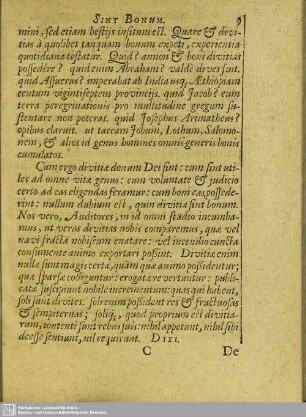 SINT BONUM. 9
mini, sed etiam bestijs insitum est. Quare & divi-
tias à quolibet tanquam bonum expeti, experientia
quotidiana testatur. Quid? annon & boni divitias
possedêre? quid enim Abraham? valdè dives fuit.
quid Assuerus? imperabat ab India usq; Æthiopiam
centum vigintiseptem provincijs. quid Jacob? eum
terra peregrinationis pro multitudine gregum su-
stentare non poterat. quid Josephus Arimatheus?
opibus claruit. ut taceam Jobum, Lothum, Salomo-
nem, & alios id genus homines omnis generis bonis
cumulatos.
Cum ergo divitiæ donum Dei sint: cum sint uti-
les ad omne vitæ genus: cum voluntate & judicio
certo ad eas eligendas feramur: cum boni eas possede-
rint: nullum dubium est, quin divitiæ sint bonum.
Nos verò, Auditores, in id omni studio incumba-
mus, ut veras divitias nobis comparemus, quæ vel
navi fracta nobiscum enatare: vel incendio cuncta
consumente animo exportari possint. Divitiæ enim
nullæ sunt magis certæ, quàm quæ animo possidentur;
quæ sparsæ colliguntur: erogatæ revertuntur: publi-
catæ suscipiunt nobile incrementum: quas qui habent,
soli sunt divites: soli enim possident res & fructuosas
& sempiternas; soliq, quod proprium est divitia-
rum, contenti sunt rebus suis: nihil appetunt, nihil sibi
deesse sentiunt, nil requirunt. DIXI.
C De
Sächsische Landesbibliothek -
Staats- und Universitätsbibliothek Dresden